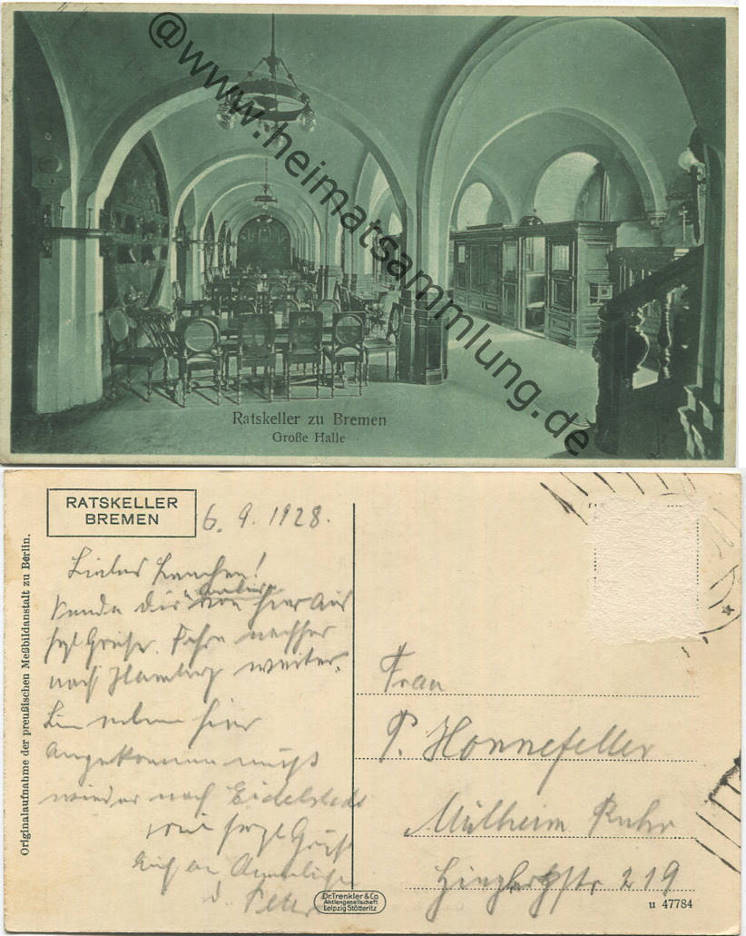 @www.heimatsammlung.de
Ratskeller zu Bremen
Große Halle
RATSKELLER
BREMEN
6. 9. 1928.
Originalaufnahme der preußischen Meßbildanstalt zu Berlin.
Liebes
Sende Dir von hier aus
Grüße. Fahre nachher
nach Hamburg weiter.
hier
angekommen muß
wieder nach Eidelstedt
Gruß
d. Peter
Frau
P. Honnefeller
Mülheim Ruhr
219
Dr. Trenkler & Co
Aktiengesellschaft
Leipzig Stötteritz
u 47784